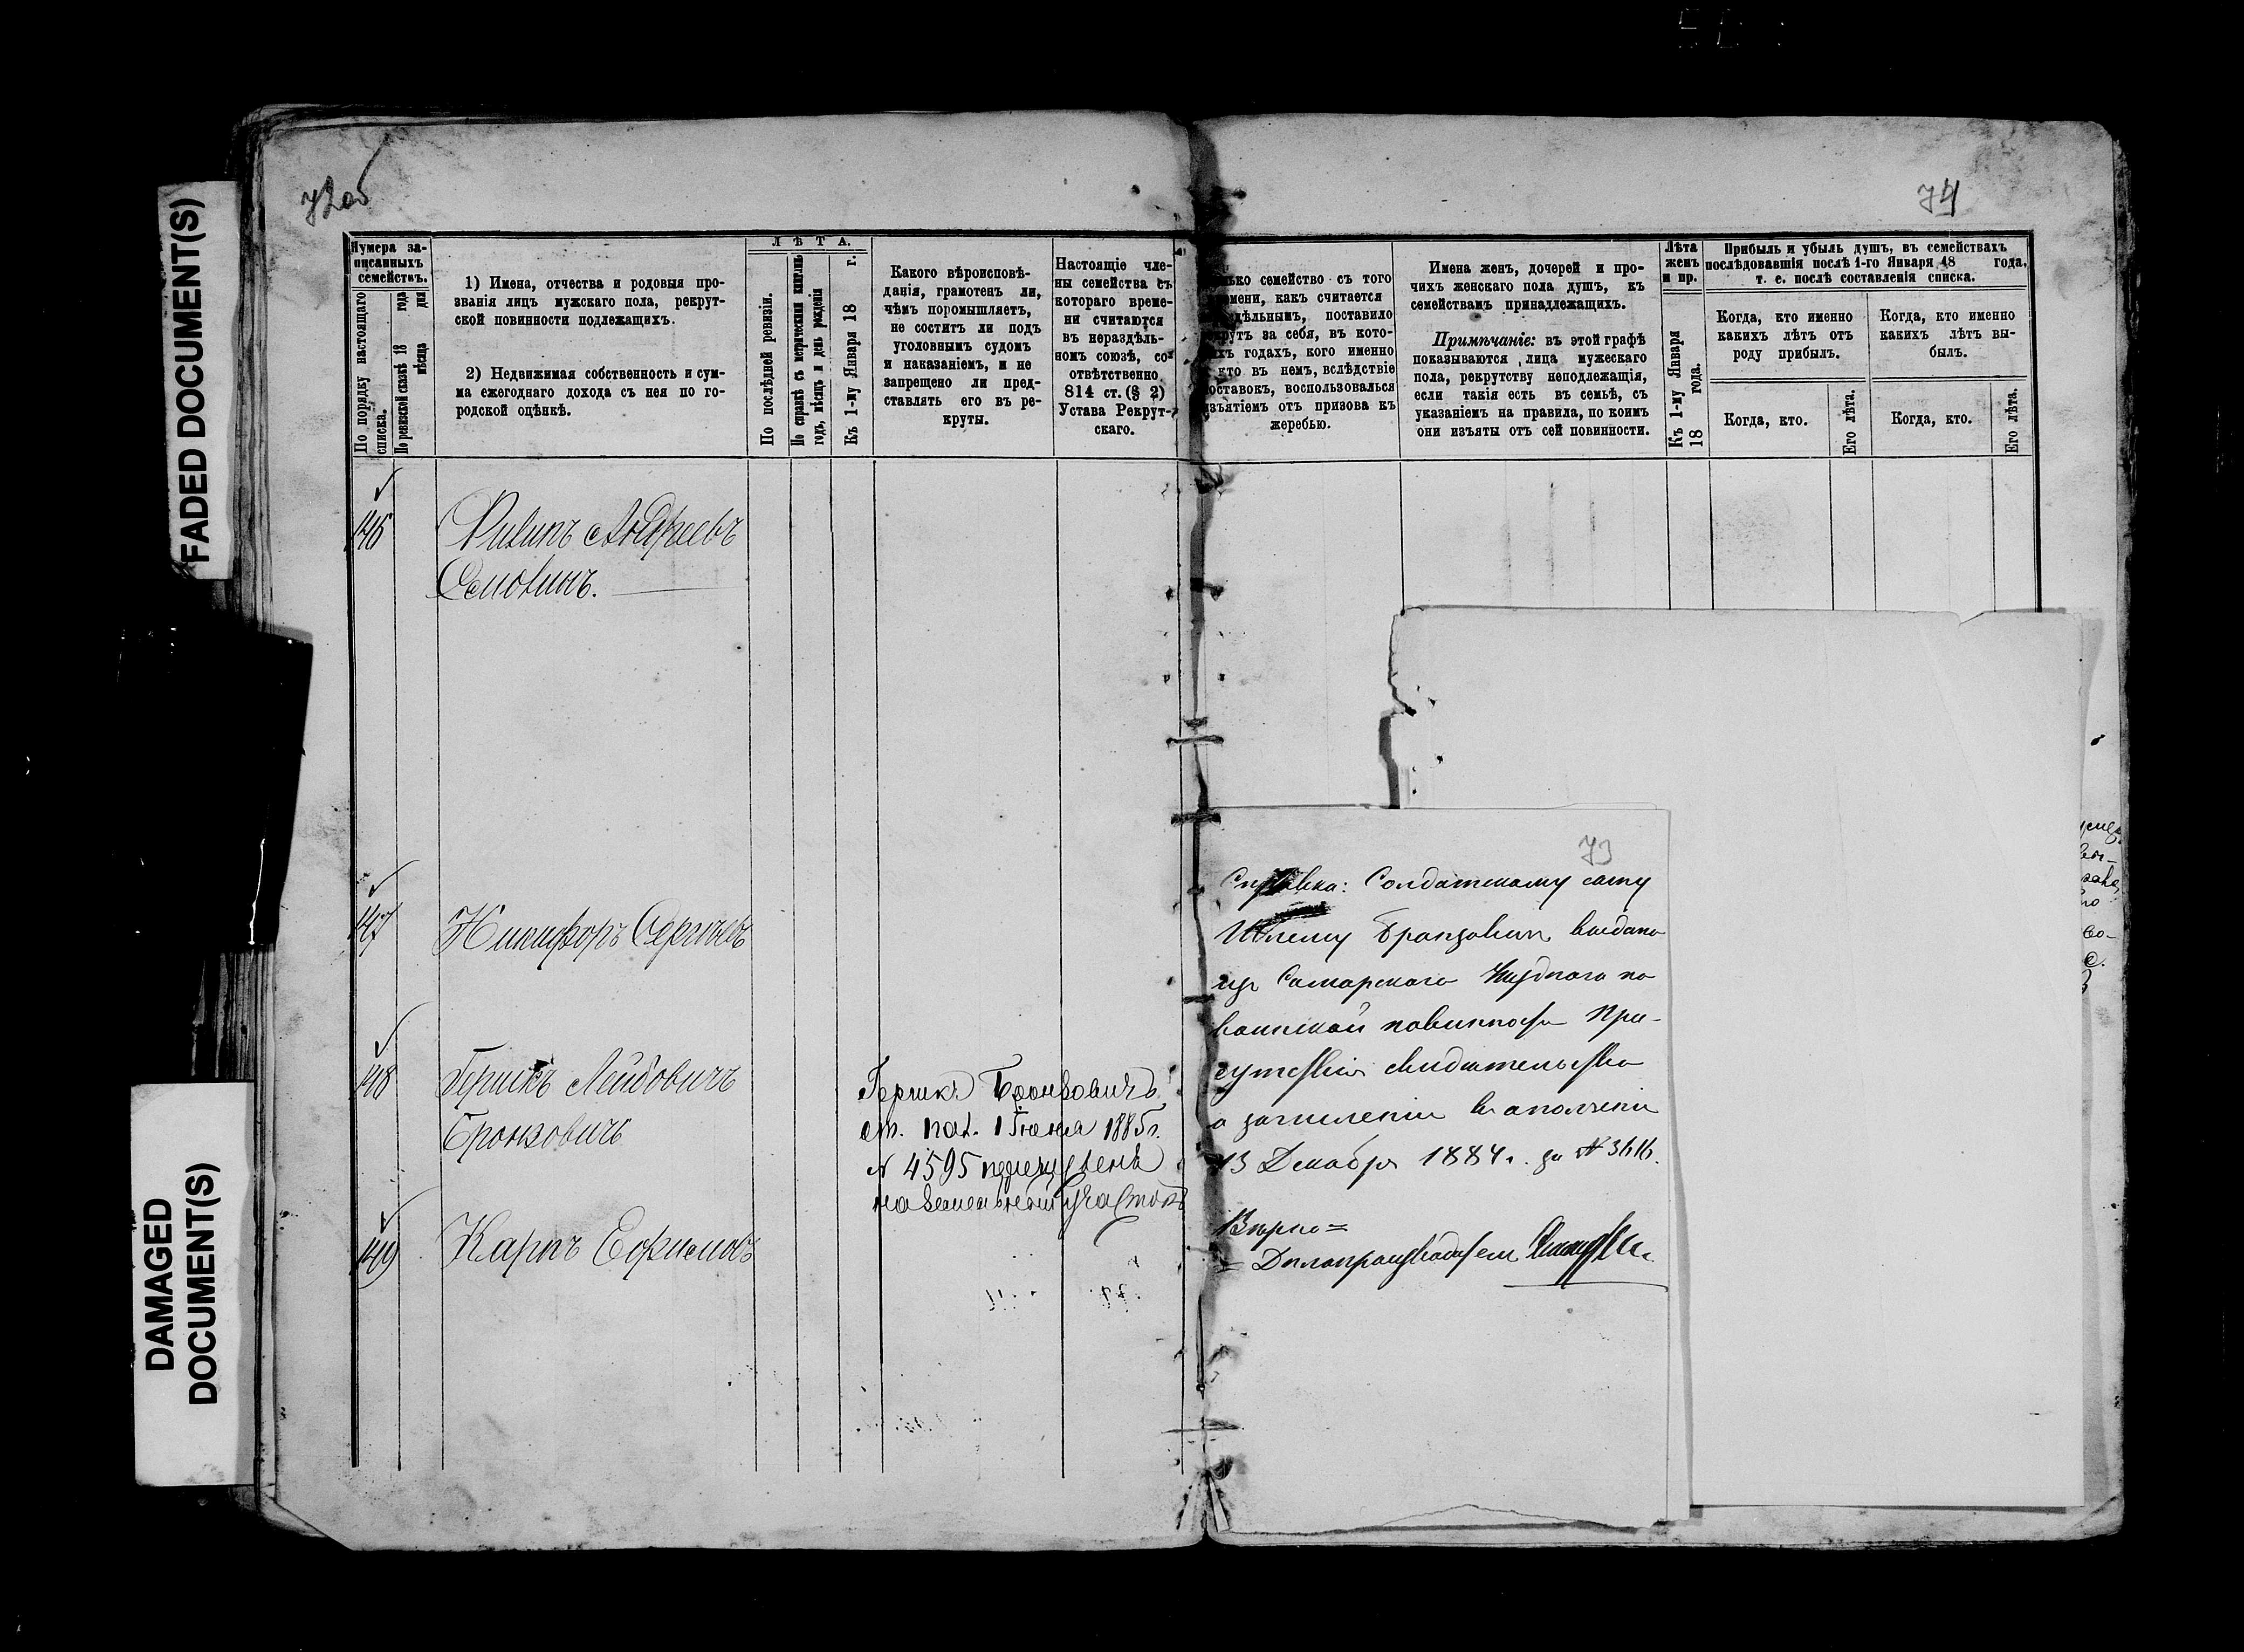 FADED DOCUMENT(S)
DAMAGED DOCUMENT(S)
72об
74
Нумера за-
писанныхъ
семействъ.
По порядку настоящаго
списка.
По ревизской сказкѣ 18 года
мѣсяца дня
1) Имена, отчества и родовыя про-
званія лицъ мужскаго пола, рекрут-
ской повинности подлежащихъ.
2) Недвижимая собственность и сум-
ма ежегоднаго дохода съ нея по го-
родской оцѣнкѣ.
ЛѢТА.
По послѣдней ревизіи.
По справкѣ съ метрическими книгами
годъ, мѣсяцъ и день рожденія
Къ 1-му Января 18 г.
Какого вѣроисповѣ-
данія, грамотенъ ли,
чѣмъ поромышляетъ,
не соститъ ли подъ
уголовнымъ судомъ
и наказаніемъ, и не
запрещено ли пред-
ставлять его въ ре-
круты.
Настоящіе чле-
ны семейства съ
котораго време-
ни считаются
въ нераздѣль-
номъ союзѣ, со-
отвѣтственно
814 ст. (§ 2)
Устава Рекрут-
скаго.
семейство съ того
какъ считается
поставило
за себя, въ кото-
годахъ, кого именно
кто въ немъ, вслѣдствіе
воспользовался
отъ призова къ
жеребью.
Имена женъ, дочерей и про-
чихъ женскаго пола душъ, къ
семействамъ принадлежащихъ.
Примѣчаніе: въ этой графѣ
показываются лица мужескаго
пола, рекрутству неподлежащія,
если такія есть въ семьѣ, съ
указаніемъ на правила, по коимъ
они изъяты отъ сей повинности.
Лѣта
женъ
и пр.
Къ 1-му Января
18 года.
Прибыль и убыль душъ, въ семействахъ
послѣдовавшія послѣ 1-го Января 18 года,
т. е. послѣ составленія списка.
Когда, кто именно
какихъ лѣтъ отъ
роду прибылъ.
Когда, кто именно
какихъ лѣтъ вы-
былъ.
Когда, кто.
Его лѣта.
Когда, кто.
Его лѣта.
146
Филипъ Андреевъ
Семовинъ.
147
Никифоръ Сергѣевъ
148
Гершкъ Лейбовичъ
Бронзовичъ
Гершкъ Бронзовичъ
ст. пол. 1 Іюня 1885 г.
№ 4595 перечисленъ
на земельный участокъ
149
Карпъ Ефимовъ
73
Справка: Солдатскому сыну
Бронзовичъ выдано
изъ Самарскаго Уѣзднаго по
воинской повинности При-
сутствія свидѣтельство
о зачисленіи въ ополченіе
13 Декабря 1884 г. за № 3616.
Вѣрно=
= Дѣлопроизводитель